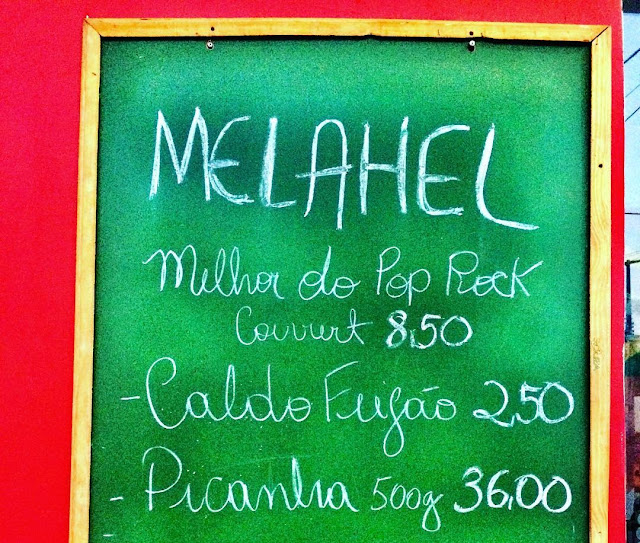 MELAHEL
Melhor do Pop Rock
Couvert 8,50
- Caldo Feijão 2,50
- Picanha 500g 36,00